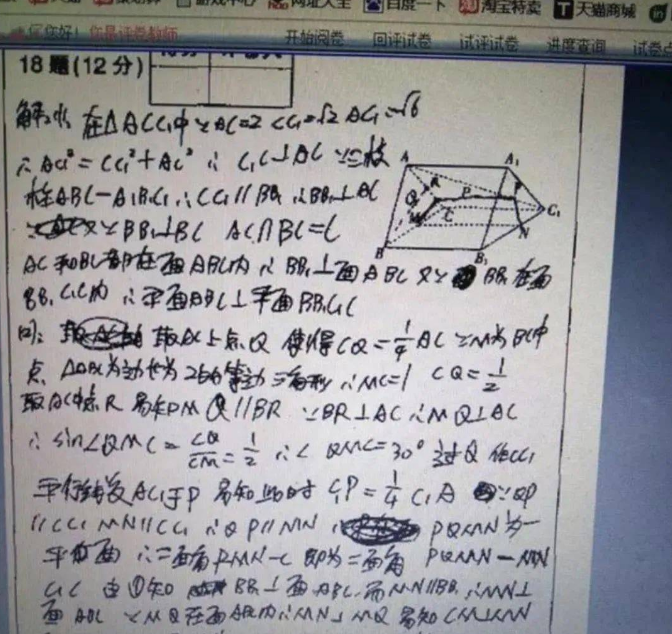 百度一下 淘宝特卖 T 天猫商城
你好! 你是评卷教师 开始阅卷 回评试卷 试评试卷 进度查询 试卷
18题(12分)
在△ACC₁中 ∵AC=2 CC₁=√2 AC₁=√6
∴AC₁²=CC₁²+AC² ∴C₁C⊥AC ∵三棱
柱ABC-A₁B₁C₁ ∴CC₁∥BB₁ ∴BB₁⊥AC
又∵BB₁⊥BC AC∩BC=C
AC和BC都在面ABC内 ∴BB₁⊥面ABC 又∵BB₁在面
BB₁C₁C内 ∴平面ABC⊥平面BB₁C₁C
取AC上点Q 使得CQ=1/4AC ∵M为BC中
点 △ABC为边长为2的等边三角形 ∴MC=1 CQ=1/2
取AC中点R 易知MQ∥BR ∵BR⊥AC ∴MQ⊥AC
∴sin∠QMC=CQ/CM=1/2 ∴∠QMC=30° 过Q作CC₁
平行线交AC₁于P 易知此时C₁P=1/4C₁A ∵QP
∥CC₁ MN∥CC₁ ∴QP∥MN PQMN为一
平面 ∴二面角PMN-C即为二面角PQMN-MN
C₁C 由①知 BB₁⊥面ABC 而MN∥BB₁ ∴MN⊥
面ABC ∵MQ在面ABC内 ∴MN⊥MQ 易知CM⊥MN
A A₁
R P
Q C C₁
M N
B B₁